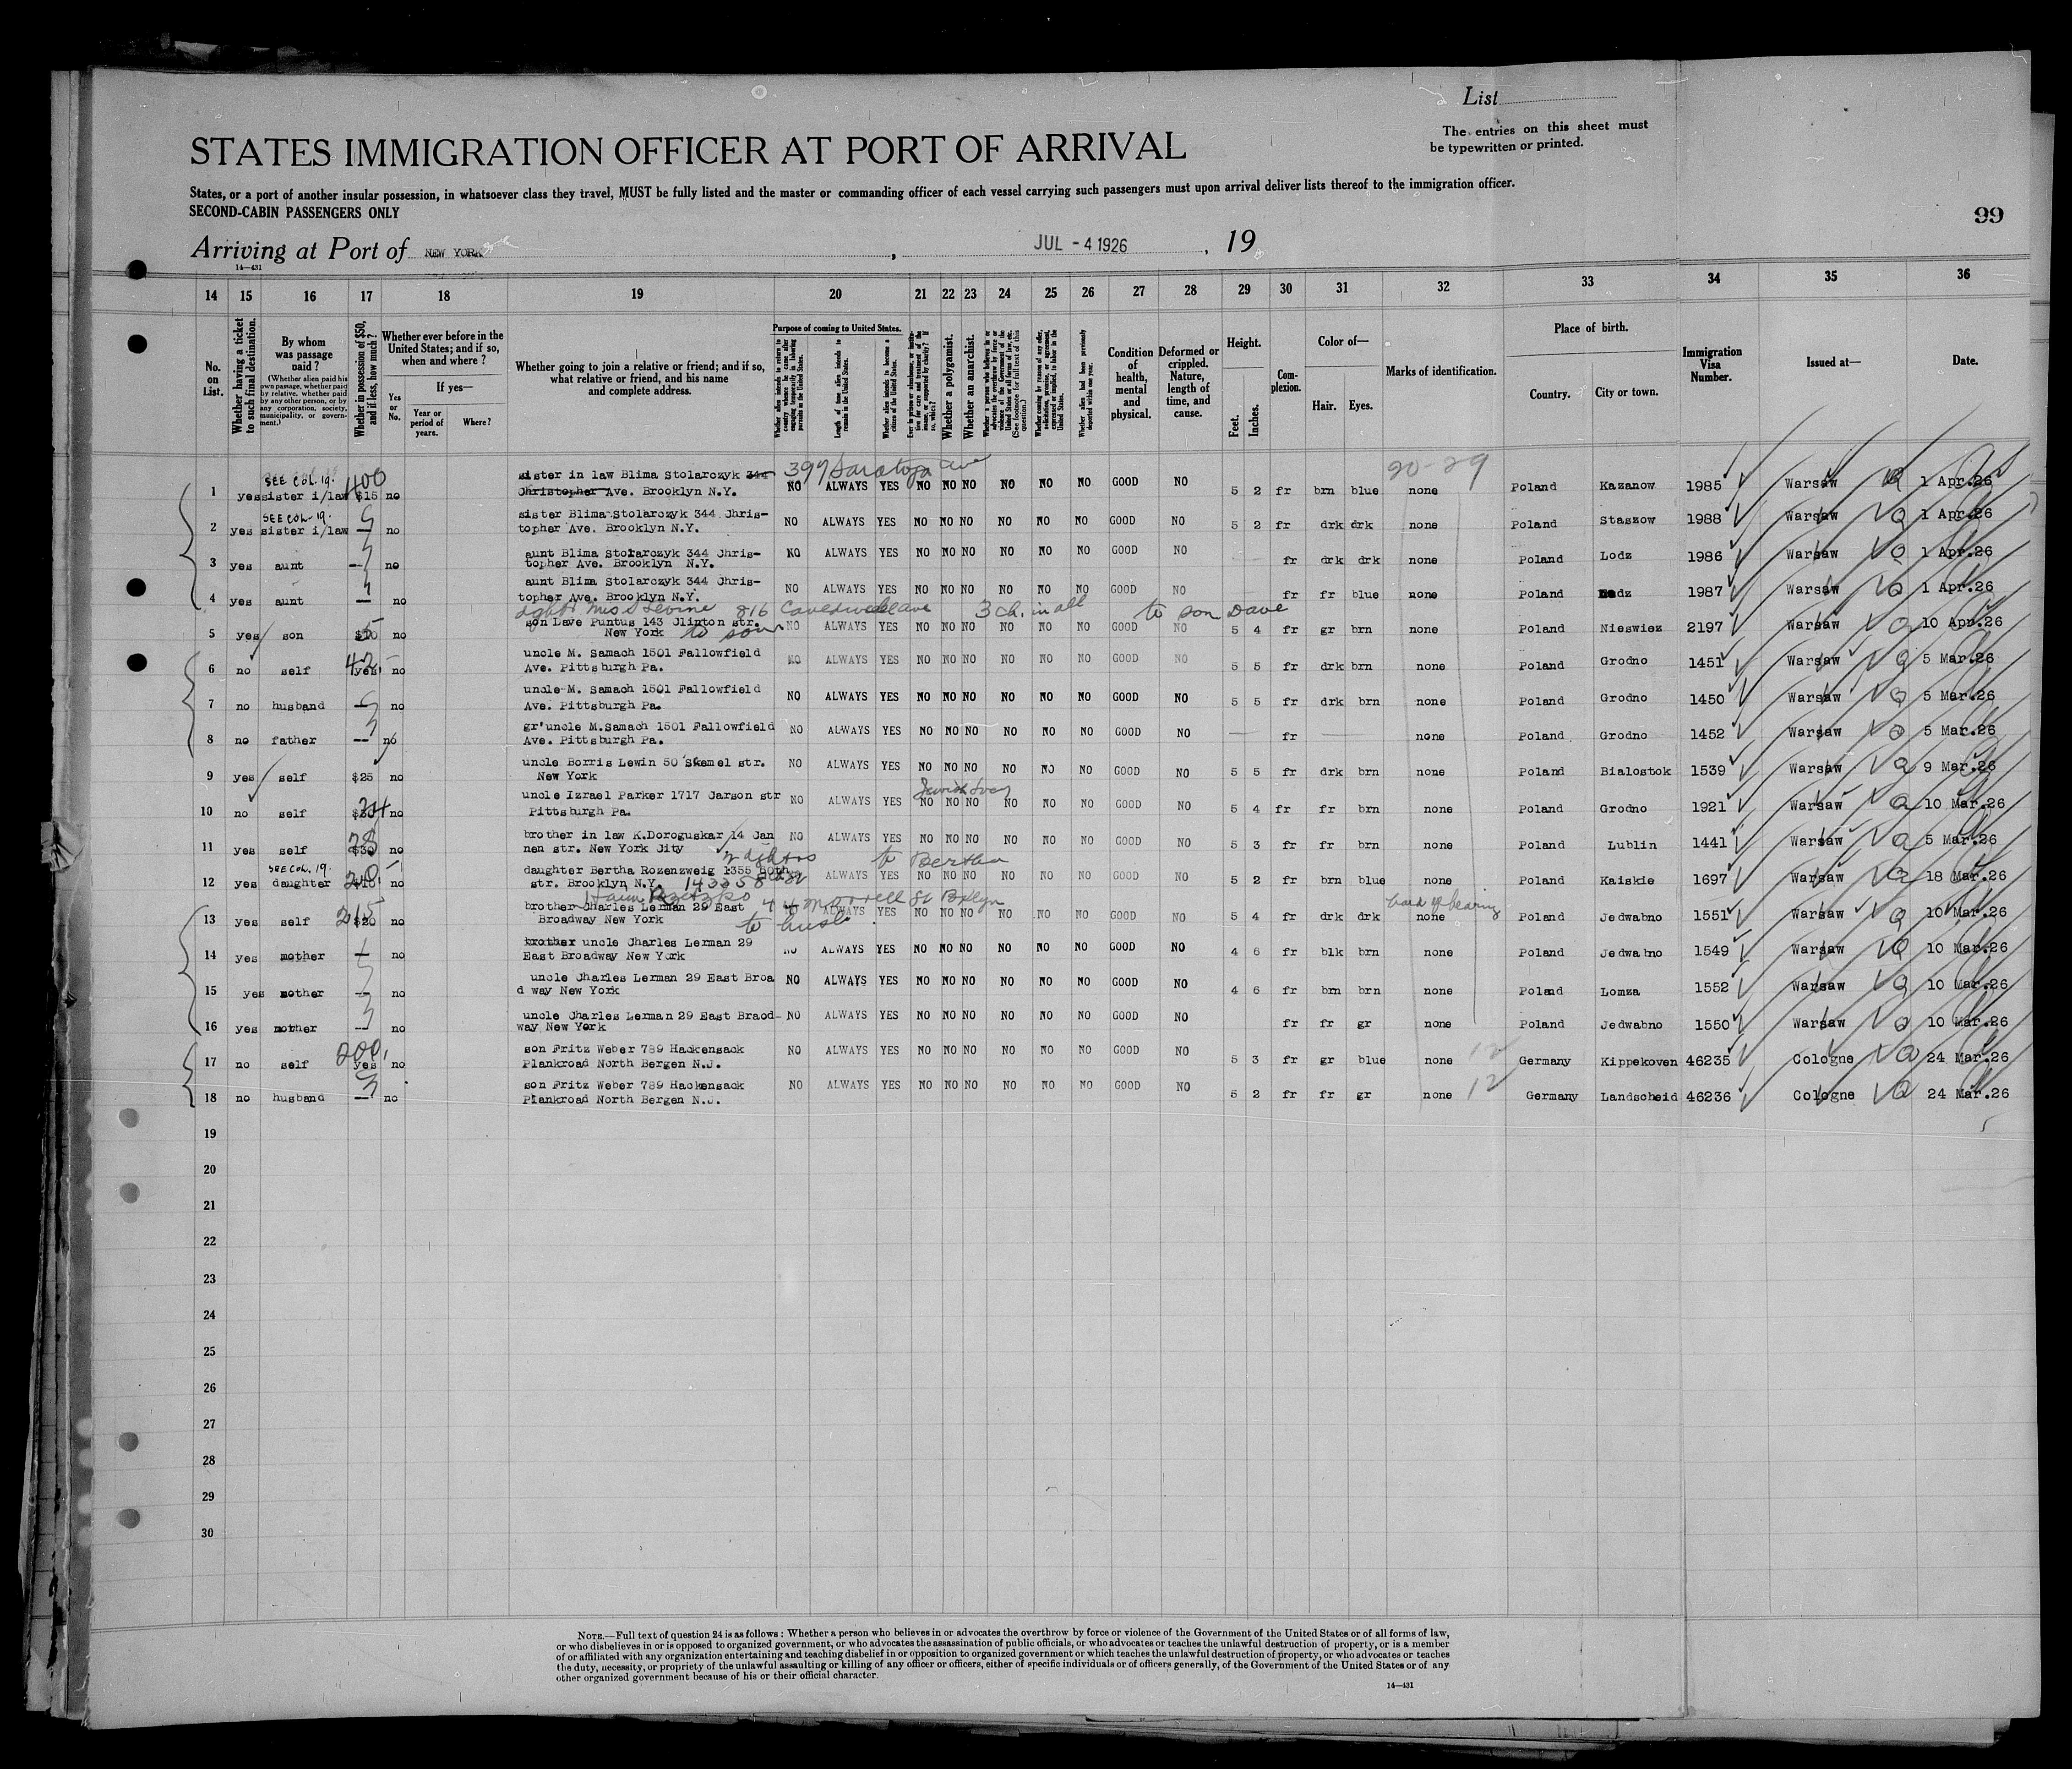 List
The entries on this sheet must
be typewritten or printed.
STATES IMMIGRATION OFFICER AT PORT OF ARRIVAL
States, or a port of another insular possession, in whatsoever class they travel, MUST be fully listed and the master or commanding officer of each vessel carrying such passengers must upon arrival deliver lists thereof to the immigration officer.
SECOND-CABIN PASSENGERS ONLY
99
Arriving at Port of NEW YORK, JUL - 4 1926, 19
14—431
14 15 16 17 18 19 20 21 22 23 24 25 26 27 28 29 30 31 32 33 34 35 36
No. on List.
Whether having a ticket to such final destination.
By whom was passage paid?
(Whether alien paid his own passage, whether paid by relative, whether paid by any other person, or by any corporation, society, municipality, or government.)
Whether in possession of $50, and if less, how much?
Whether ever before in the United States; and if so, when and where?
Yes or No.
If yes—
Year or period of years.
Where?
Whether going to join a relative or friend; and if so, what relative or friend, and his name and complete address.
Purpose of coming to United States.
Length of time alien intends to remain in the United States.
Whether alien intends to become a citizen of the United States.
Whether a polygamist.
Whether an anarchist.
Whether alien had been previously deported within one year.
Condition of health, mental and physical.
Deformed or crippled. Nature, length of time, and cause.
Height.
Feet.
Inches.
Complexion.
Color of—
Hair.
Eyes.
Marks of identification.
Place of birth.
Country.
City or town.
Immigration Visa Number.
Issued at—
Date.
SEE COL. 19. 400 sister in law Blima Stolarczyk 344 397 Saratoga ave 20-29
1 yes sister i/law $15 no Christopher Ave. Brooklyn N.Y. NO ALWAYS YES NO NO NO NO NO NO GOOD NO 5 2 fr brn blue none Poland Kazanow 1985 Warsaw 1 Apr.26
SEE COL. 19. sister Blima Stolarczyk 344 Chris-
2 yes sister i/law — no topher Ave. Brooklyn N.Y. NO ALWAYS YES NO NO NO NO NO NO GOOD NO 5 2 fr drk drk none Poland Staszow 1988 Warsaw 1 Apr.26
aunt Blima Stolarczyk 344 Chris-
3 yes aunt — no topher Ave. Brooklyn N.Y. NO ALWAYS YES NO NO NO NO NO NO GOOD NO fr drk drk none Poland Lodz 1986 Warsaw 1 Apr.26
aunt Blima Stolarczyk 344 Chris-
4 yes aunt — no topher Ave. Brooklyn N.Y. NO ALWAYS YES NO NO NO NO NO NO GOOD NO fr fr blue none Poland Lodz 1987 Warsaw 1 Apr.26
Levine 816 ave 3 ch. in all to son Dave
son Dave Puntus 143 Clinton str.
5 yes son no New York to son NO ALWAYS YES NO NO NO NO NO NO GOOD NO 5 4 fr gr brn none Poland Nieswiez 2197 Warsaw 10 Apr.26
uncle M. Samach 1501 Fallowfield
6 no self yes no Ave. Pittsburgh Pa. NO ALWAYS YES NO NO NO NO NO NO GOOD NO 5 5 fr drk brn none Poland Grodno 1451 Warsaw 5 Mar.26
uncle M. Samach 1501 Fallowfield
7 no husband — no Ave. Pittsburgh Pa. NO ALWAYS YES NO NO NO NO NO NO GOOD NO 5 5 fr drk brn none Poland Grodno 1450 Warsaw 5 Mar.26
gr'uncle M.Samach 1501 Fallowfield
8 no father — no Ave. Pittsburgh Pa. NO ALWAYS YES NO NO NO NO NO NO GOOD NO — fr — none Poland Grodno 1452 Warsaw 5 Mar.26
uncle Borris Lewin 50 Skemel str.
9 yes self $25 no New York NO ALWAYS YES NO NO NO NO NO NO GOOD NO 5 5 fr drk brn none Poland Bialostok 1539 Warsaw 9 Mar.26
uncle Izrael Parker 1717 Carson str
10 no self no Pittsburgh Pa. NO ALWAYS YES NO NO NO NO NO NO GOOD NO 5 4 fr fr brn none Poland Grodno 1921 Warsaw 10 Mar.26
brother in law K.Doroguskar 14 Jan
11 yes self $30 no nen str. New York City NO ALWAYS YES NO NO NO NO NO NO GOOD NO 5 3 fr fr brn none Poland Lublin 1441 Warsaw 5 Mar.26
to Bertha
SEE COL. 19. daughter Bertha Rozenzweig 1355 60th
12 yes daughter no str. Brooklyn N.Y. NO ALWAYS YES NO NO NO NO NO NO GOOD NO 5 2 fr brn blue none Poland Kaiskie 1697 Warsaw 18 Mar.26
44 St Bklyn hard of hearing
215 brother Charles Lerman 29 East
13 yes self $20 no Broadway New York to husb. NO ALWAYS YES NO NO NO NO NO NO GOOD NO 5 4 fr drk drk none Poland Jedwabno 1551 Warsaw 10 Mar.26
brother uncle Charles Lerman 29
14 yes mother — no East Broadway New York NO ALWAYS YES NO NO NO NO NO NO GOOD NO 4 6 fr blk brn none Poland Jedwabno 1549 Warsaw 10 Mar.26
uncle Charles Lerman 29 East Broa
15 yes mother — no d way New York NO ALWAYS YES NO NO NO NO NO NO GOOD NO 4 6 fr brn brn none Poland Lomza 1552 Warsaw 10 Mar.26
uncle Charles Lerman 29 East Braod-
16 yes mother — no way New York NO ALWAYS YES NO NO NO NO NO NO GOOD NO fr fr gr none Poland Jedwabno 1550 Warsaw 10 Mar.26
200 son Fritz Weber 789 Hackensack
17 no self yes no Plankroad North Bergen N.J. NO ALWAYS YES NO NO NO NO NO NO GOOD NO 5 3 fr gr blue none 12 Germany Kippekoven 46235 Cologne 24 Mar.26
son Fritz Weber 789 Hackensack
18 no husband — no Plankroad North Bergen N.J. NO ALWAYS YES NO NO NO NO NO NO GOOD NO 5 2 fr fr gr none 12 Germany Landscheid 46236 Cologne 24 Mar.26
19
20
21
22
23
24
25
26
27
28
29
30
NOTE.—Full text of question 24 is as follows: Whether a person who believes in or advocates the overthrow by force or violence of the Government of the United States or of all forms of law,
or who disbelieves in or is opposed to organized government, or who advocates the assassination of public officials, or who advocates or teaches the unlawful destruction of property, or is a member
of or affiliated with any organization entertaining and teaching disbelief in or opposition to organized government or which teaches the unlawful destruction of property, or who advocates or teaches
the duty, necessity, or propriety of the unlawful assaulting or killing of any officer or officers, either of specific individuals or of officers generally, of the Government of the United States or of any
other organized government because of his or their official character.
14—431